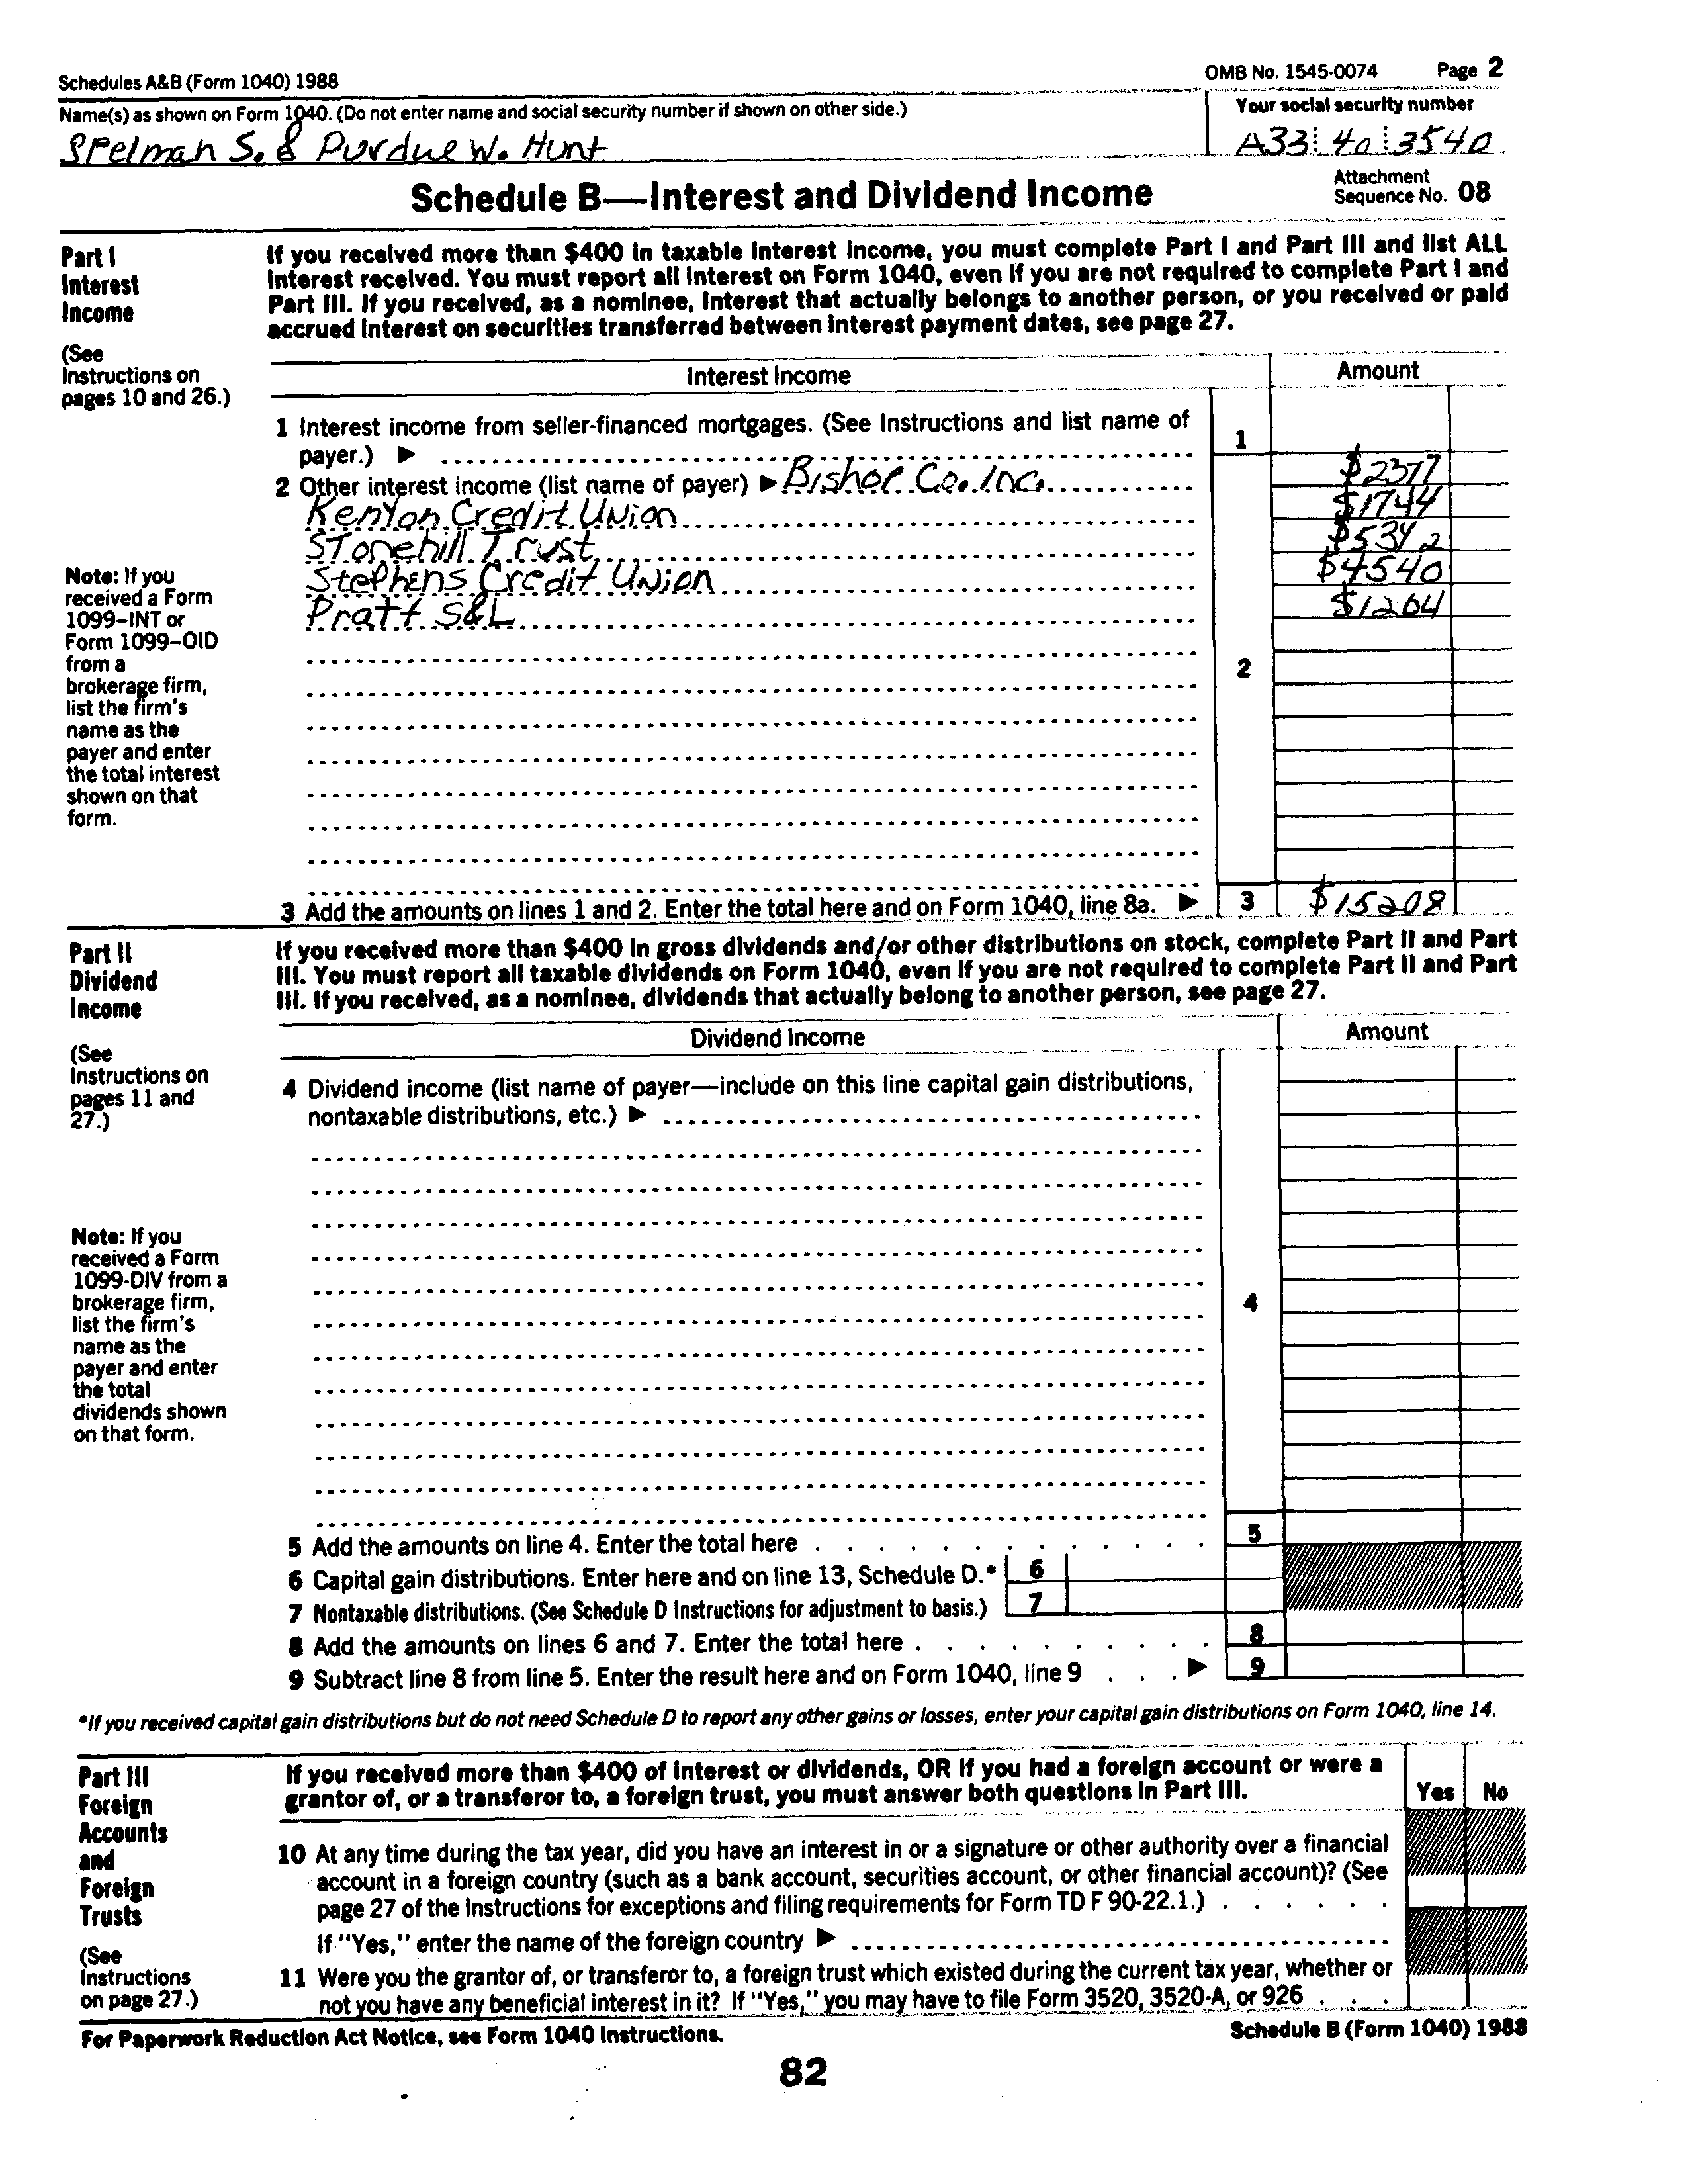 Schedules A&B (Form 1040) 1988
OMB No. 1545-0074 Page 2
Name(s) as shown on Form 1040. (Do not enter name and social security number if shown on other side.)
Your social security number
Spelman S. & Purdue W. Hunt
A33 40 3540
Schedule B—Interest and Dividend Income
Attachment
Sequence No. 08
Part I
Interest
Income
(See
Instructions on
pages 10 and 26.)
If you received more than $400 in taxable interest income, you must complete Part I and Part III and list ALL
interest received. You must report all interest on Form 1040, even if you are not required to complete Part I and
Part III. If you received, as a nominee, interest that actually belongs to another person, or you received or paid
accrued interest on securities transferred between interest payment dates, see page 27.
Interest Income
Amount
1 Interest income from seller-financed mortgages. (See Instructions and list name of
payer.) ▶
1
2 Other interest income (list name of payer) ▶ Bishop Co. Inc. $2377
Kenyon Credit Union $1744
Stonehill Trust $5342
Stephens Credit Union $4540
Pratt S&L $1204
2
Note: If you
received a Form
1099–INT or
Form 1099–OID
from a
brokerage firm,
list the firm's
name as the
payer and enter
the total interest
shown on that
form.
3 Add the amounts on lines 1 and 2. Enter the total here and on Form 1040, line 8a. ▶ 3 $15208
Part II
Dividend
Income
(See
Instructions on
pages 11 and
27.)
If you received more than $400 in gross dividends and/or other distributions on stock, complete Part II and Part
III. You must report all taxable dividends on Form 1040, even if you are not required to complete Part II and Part
III. If you received, as a nominee, dividends that actually belong to another person, see page 27.
Dividend Income
Amount
4 Dividend income (list name of payer—include on this line capital gain distributions,
nontaxable distributions, etc.) ▶
4
Note: If you
received a Form
1099-DIV from a
brokerage firm,
list the firm's
name as the
payer and enter
the total
dividends shown
on that form.
5 Add the amounts on line 4. Enter the total here . . . . . . . . . . . . . 5
6 Capital gain distributions. Enter here and on line 13, Schedule D.* 6
7 Nontaxable distributions. (See Schedule D Instructions for adjustment to basis.) 7
8 Add the amounts on lines 6 and 7. Enter the total here . . . . . . . . . . 8
9 Subtract line 8 from line 5. Enter the result here and on Form 1040, line 9 . . . ▶ 9
*If you received capital gain distributions but do not need Schedule D to report any other gains or losses, enter your capital gain distributions on Form 1040, line 14.
Part III
Foreign
Accounts
and
Foreign
Trusts
(See
Instructions
on page 27.)
If you received more than $400 of interest or dividends, OR if you had a foreign account or were a
grantor of, or a transferor to, a foreign trust, you must answer both questions in Part III.
Yes No
10 At any time during the tax year, did you have an interest in or a signature or other authority over a financial
account in a foreign country (such as a bank account, securities account, or other financial account)? (See
page 27 of the Instructions for exceptions and filing requirements for Form TD F 90-22.1.) . . . . . .
If "Yes," enter the name of the foreign country ▶
11 Were you the grantor of, or transferor to, a foreign trust which existed during the current tax year, whether or
not you have any beneficial interest in it? If "Yes," you may have to file Form 3520, 3520-A, or 926 . . .
For Paperwork Reduction Act Notice, see Form 1040 Instructions.
Schedule B (Form 1040) 1988
82